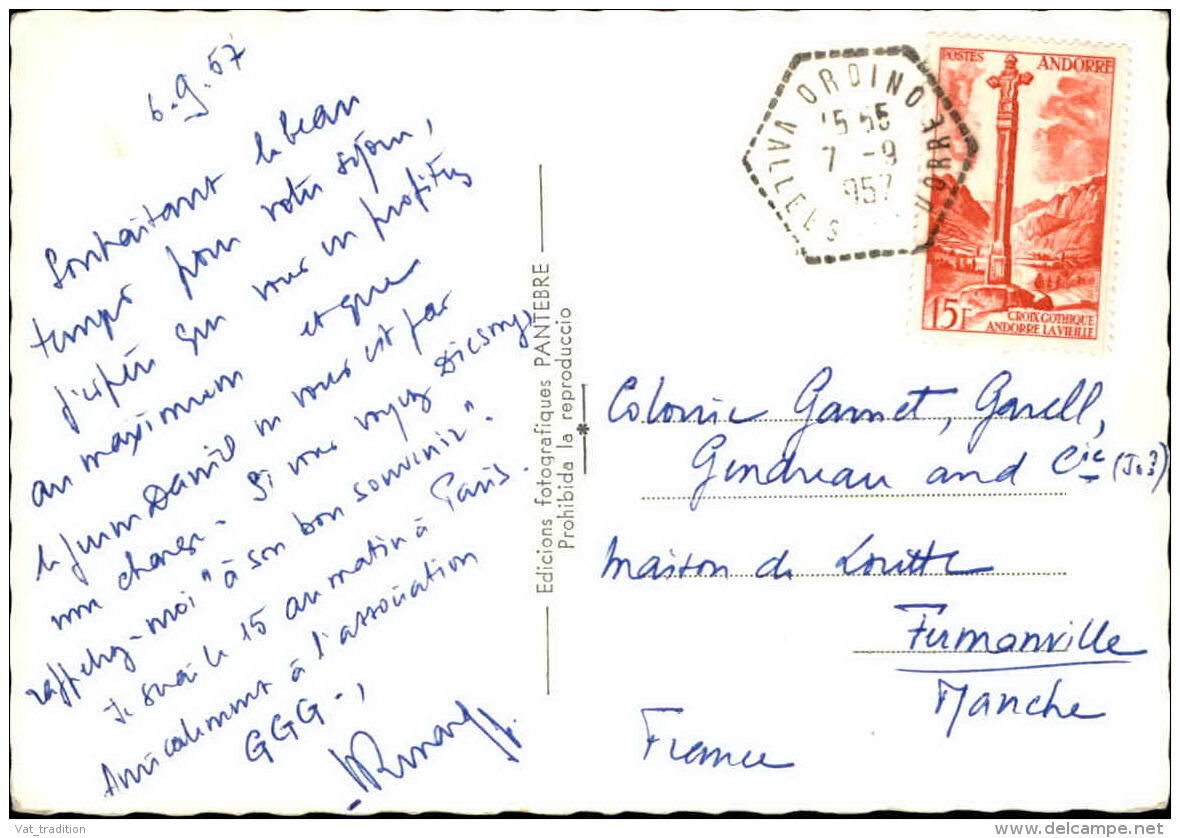 6-9-57
Souhaitant le beau
temps pour votre séjour,
j'espère que vous en profitez
au maximum et que
le jeune Daniel ne vous est pas
non charge - Si vous voyez
rappelez-moi "à son bon souvenir".
Je serai le 15 au matin à Paris.
Amicalement à l'association
GGG-,
Edicions fotografiques PANTEBRE
Prohibida la reproduccio
ORDINO
VALLEES
15 55
7 -9
957
POSTES ANDORRE
15F
CROIX GOTHIQUE
ANDORRE LA VIEILLE
Colonie Garnet, Garell,
Gendreau and Cie (Je3)
maison de Louitte
Fermanville
Manche
France
Vat_tradition
delcampe.net